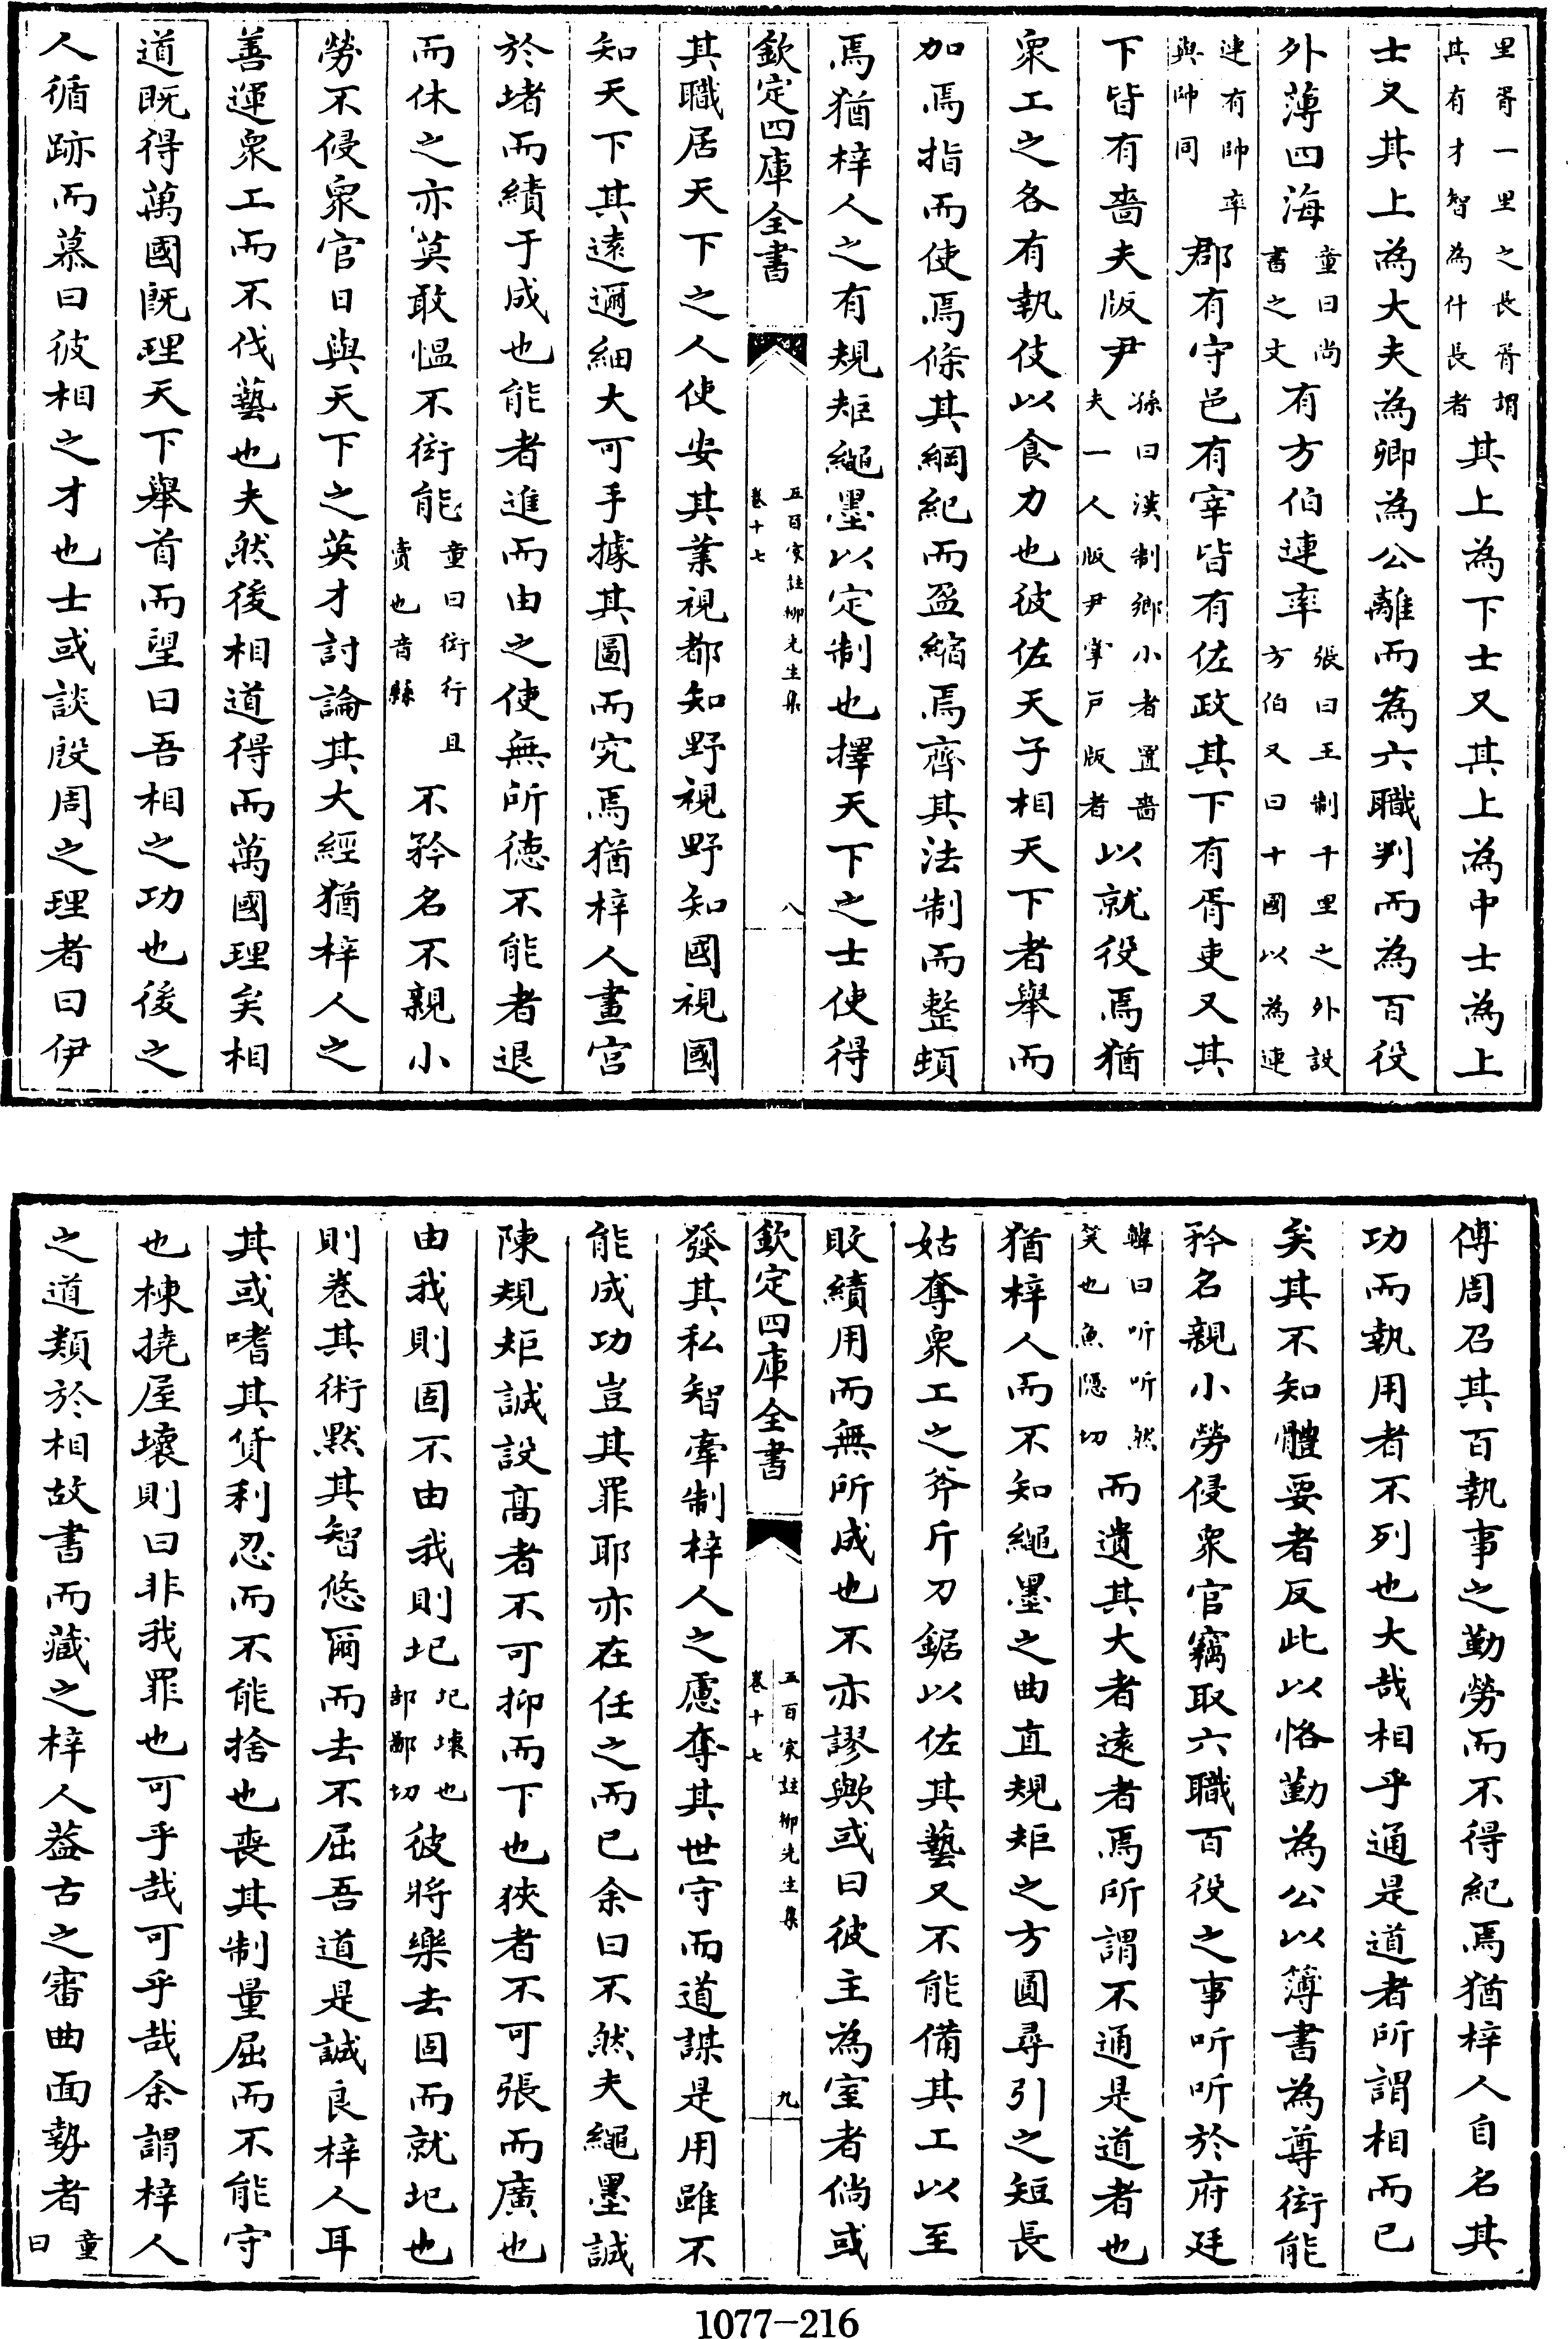 里胥一里之長胥謂其有才智為什長者其上為下士又其上為中士為上
士又其上為大夫為卿為公離而為六職判而為百役
外薄四海童曰尚書之文有方伯連率張曰王制千里之外設方伯又曰十國以為連
連有帥率與帥同郡有守邑有宰皆有佐政其下有胥吏又其
下皆有嗇夫版尹孫曰漢制鄉小者置嗇夫一人版尹掌戸版者以就役焉猶
衆工之各有執伎以食力也彼佐天子相天下者舉而
加焉指而使焉條其綱紀而盈縮焉齊其法制而整頓
焉猶梓人之有規矩繩墨以定制也擇天下之士使得
欽定四庫全書
五百家註柳先生集
卷十七
八
其職居天下之人使安其業視都知野視野知國視國
知天下其遠邇細大可手據其圖而究焉猶梓人畫宫
於堵而績于成也能者進而由之使無所徳不能者退
而休之亦莫敢愠不衒能童曰衒行且賣也音縣不矜名不親小
勞不侵衆官日與天下之英才討論其大經猶梓人之
善運衆工而不伐藝也夫然後相道得而萬國理矣相
道既得萬國既理天下舉首而望曰吾相之功也後之
人循跡而慕曰彼相之才也士或談殷周之理者曰伊
傅周召其百執事之勤勞而不得紀焉猶梓人自名其
功而執用者不列也大哉相乎通是道者所謂相而已
矣其不知體要者反此以恪勤為公以簿書為尊衒能
矜名親小勞侵衆官竊取六職百役之事听听於府廷
韓曰听听然笑也魚隠切而遺其大者遠者焉所謂不通是道者也
猶梓人而不知繩墨之曲直規矩之方圓尋引之短長
姑奪衆工之斧斤刀鋸以佐其藝又不能備其工以至
敗績用而無所成也不亦謬歟或曰彼主為室者倘或
欽定四庫全書
五百家註柳先生集
卷十七
九
發其私智牽制梓人之慮奪其世守而道謀是用雖不
能成功豈其罪耶亦在任之而已余曰不然夫繩墨誠
陳規矩誠設高者不可抑而下也狹者不可張而廣也
由我則固不由我則圮圮壞也部鄙切彼將樂去固而就圮也
則巻其術黙其智悠爾而去不屈吾道是誠良梓人耳
其或嗜其貨利忍而不能捨也喪其制量屈而不能守
也棟撓屋壞則曰非我罪也可乎哉可乎哉余謂梓人
之道類於相故書而藏之梓人葢古之審曲面勢者童曰
1077-216